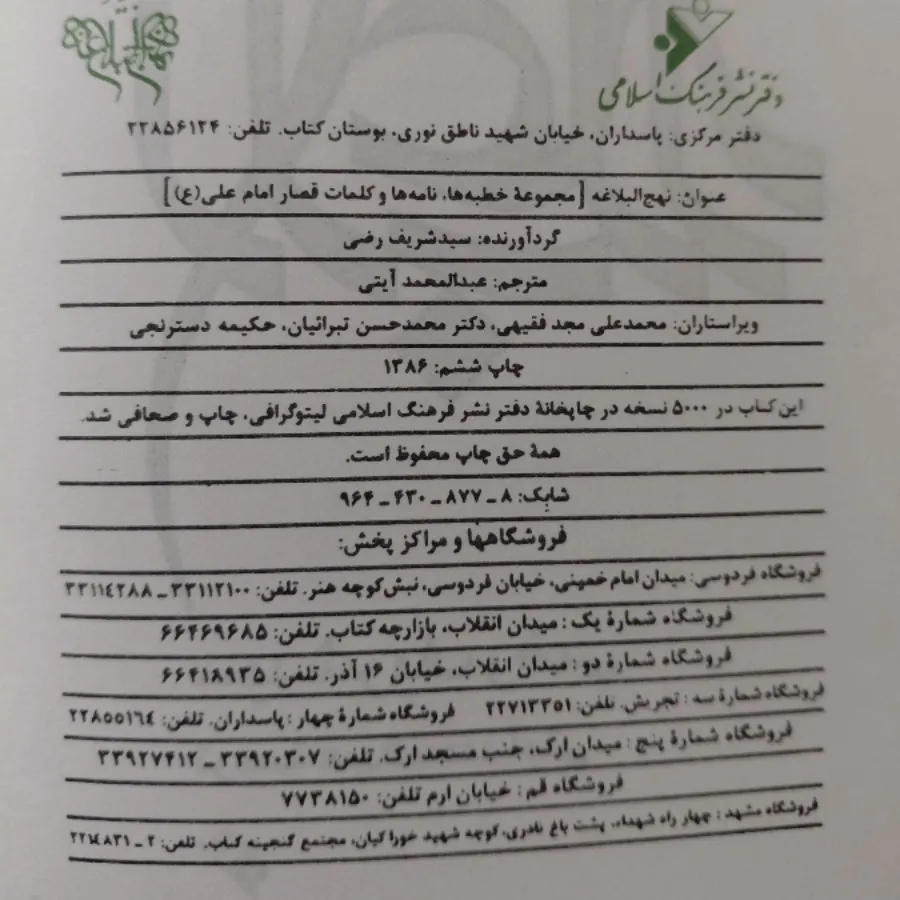 دفتر نشر فرهنگ اسلامی
دفتر مرکزی: پاسداران، خیابان شهید ناطق نوری، بوستان کتاب. تلفن: ۲۲۸۵۶۱۲۴
عنوان: نهج‌البلاغه [مجموعهٔ خطبه‌ها، نامه‌ها و کلمات قصار امام علی(ع)]
گردآورنده: سیدشریف رضی
مترجم: عبدالمحمد آیتی
ویراستاران: محمدعلی مجد فقیهی، دکتر محمدحسن تبرائیان، حکیمه دسترنجی
چاپ ششم: ۱۳۸۶
این کتاب در ۵۰۰۰ نسخه در چاپخانهٔ دفتر نشر فرهنگ اسلامی لیتوگرافی، چاپ و صحافی شد.
همهٔ حق چاپ محفوظ است.
شابک: ۸ ـ ۸۷۷ ـ ۴۳۰ ـ ۹۶۴
فروشگاهها و مراکز پخش:
فروشگاه فردوسی: میدان امام خمینی، خیابان فردوسی، نبش کوچه هنر. تلفن: ۳۳۱۱۲۱۰۰ ـ ۳۳۱۱۴۲۸۸
فروشگاه شمارهٔ یک: میدان انقلاب، بازارچه کتاب. تلفن: ۶۶۴۶۹۶۸۵
فروشگاه شمارهٔ دو: میدان انقلاب، خیابان ۱۶ آذر. تلفن: ۶۶۴۱۸۹۳۵
فروشگاه شمارهٔ سه: تجریش. تلفن: ۲۲۷۱۳۳۵۱ فروشگاه شمارهٔ چهار: پاسداران. تلفن: ۲۲۸۵۵۱۶۴
فروشگاه شمارهٔ پنج: میدان ارک، جنب مسجد ارک. تلفن: ۳۳۹۲۰۳۰۷ ـ ۳۳۹۲۷۴۱۲
فروشگاه قم: خیابان ارم تلفن: ۷۷۳۸۱۵۰
فروشگاه مشهد: چهار راه شهداء، پشت باغ نادری، کوچه شهید خوراکیان، مجتمع گنجینه کتاب. تلفن: ۲ ـ ۲۲۱۴۸۳۱